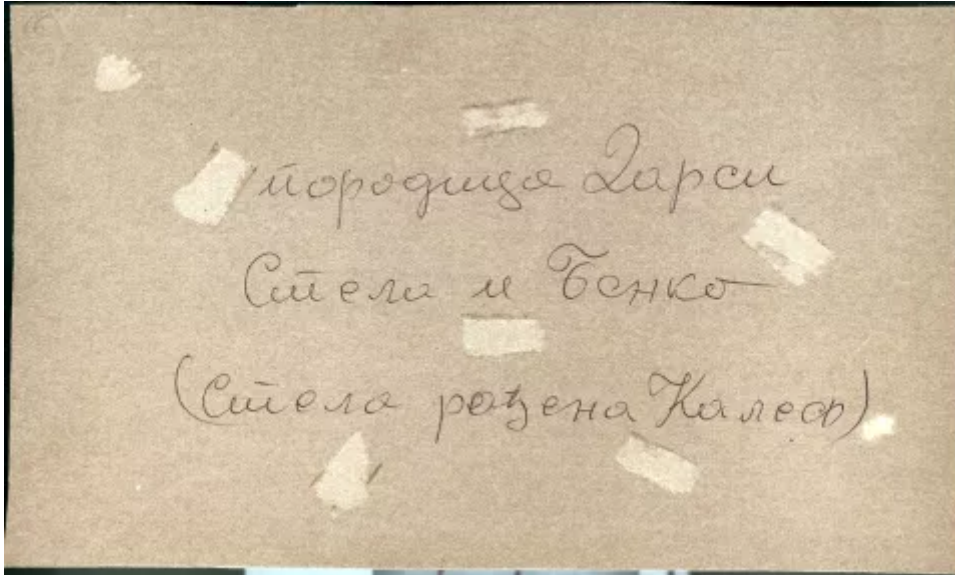 породица Дарси
Стела и Бенко
(Стела рођена Калеф)